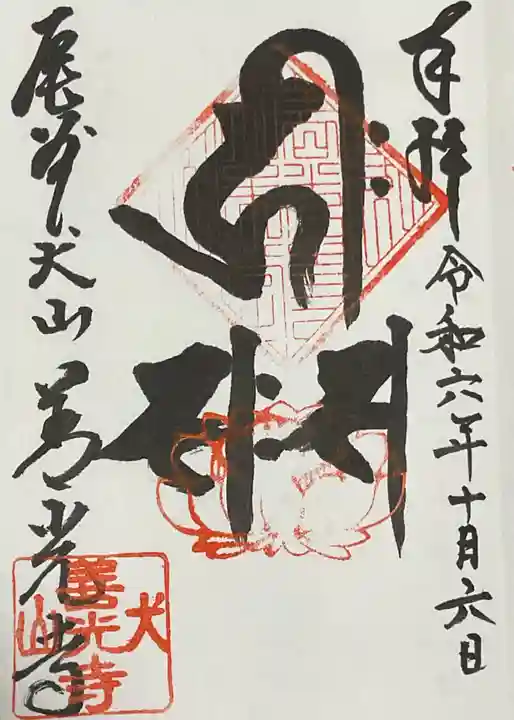 奉拝 令和六年十月六日
𑖮𑖿𑖨𑖱𑖾
𑖭 𑖭𑖾
尾州犬山 善光寺
犬山
善光寺